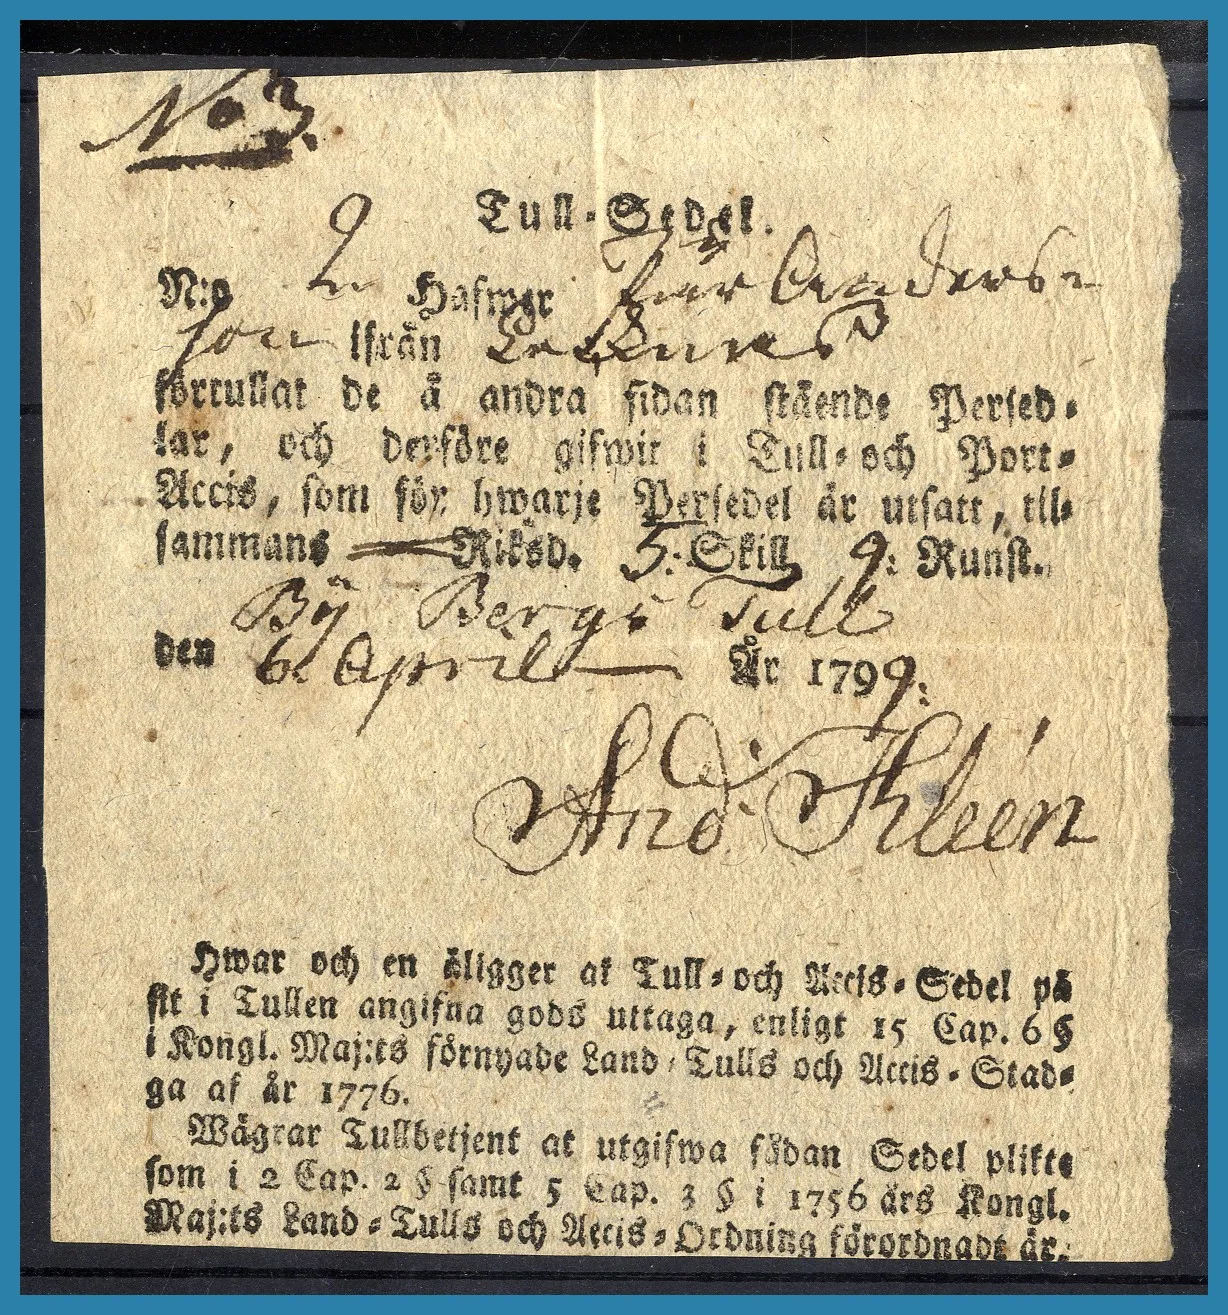 No 3.
Tull-Sedel.
N:o 2 Hafwer Pär Anders-
son ifrån
förtullat de å andra sidan stående Persed-
lar, och derföre gifwit i Tull- och Port-
Accis, som för hwarje Persedel är utsatt, til-
sammans — Riksd. 5: Skill 9: Runst.
By Berga Tull
den 6. April — År 1799:
And: Thleén
Hwar och en åligger at Tull- och Accis-Sedel på
sit i Tullen angifna gods uttaga, enligt 15 Cap. 6 §
i Kongl. Maj:ts förnyade Land-Tulls och Accis-Stad-
ga af år 1776.
Wägrar Tullbetjent at utgifwa sådan Sedel plikte
som i 2 Cap. 2 § samt 5 Cap. 3 § i 1756 års Kongl.
Maj:ts Land-Tulls och Accis-Ordning förordnadt är.